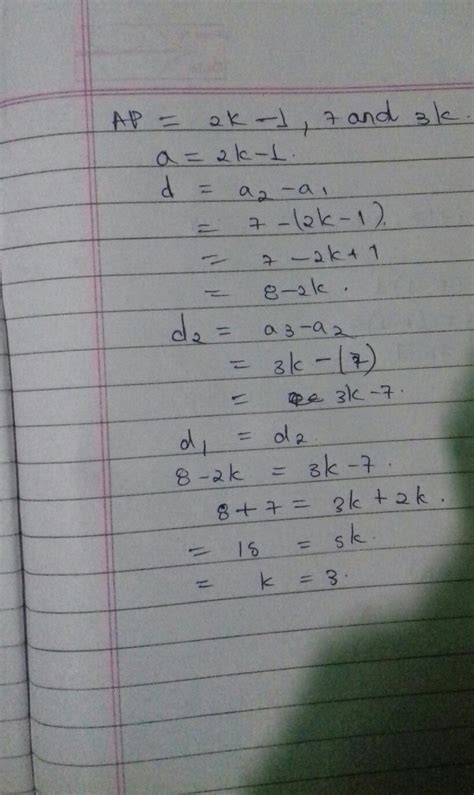 AP = 2k-1, 7 and 3k.
a = 2k-1.
d = a₂-a₁
= 7-(2k-1)
= 7-2k+1
= 8-2k.
d₂ = a₃-a₂
= 3k-(7)
= 3k-7.
d₁ = d₂.
8-2k = 3k-7.
8+7 = 3k+2k.
= 15 = 5k.
= k = 3.